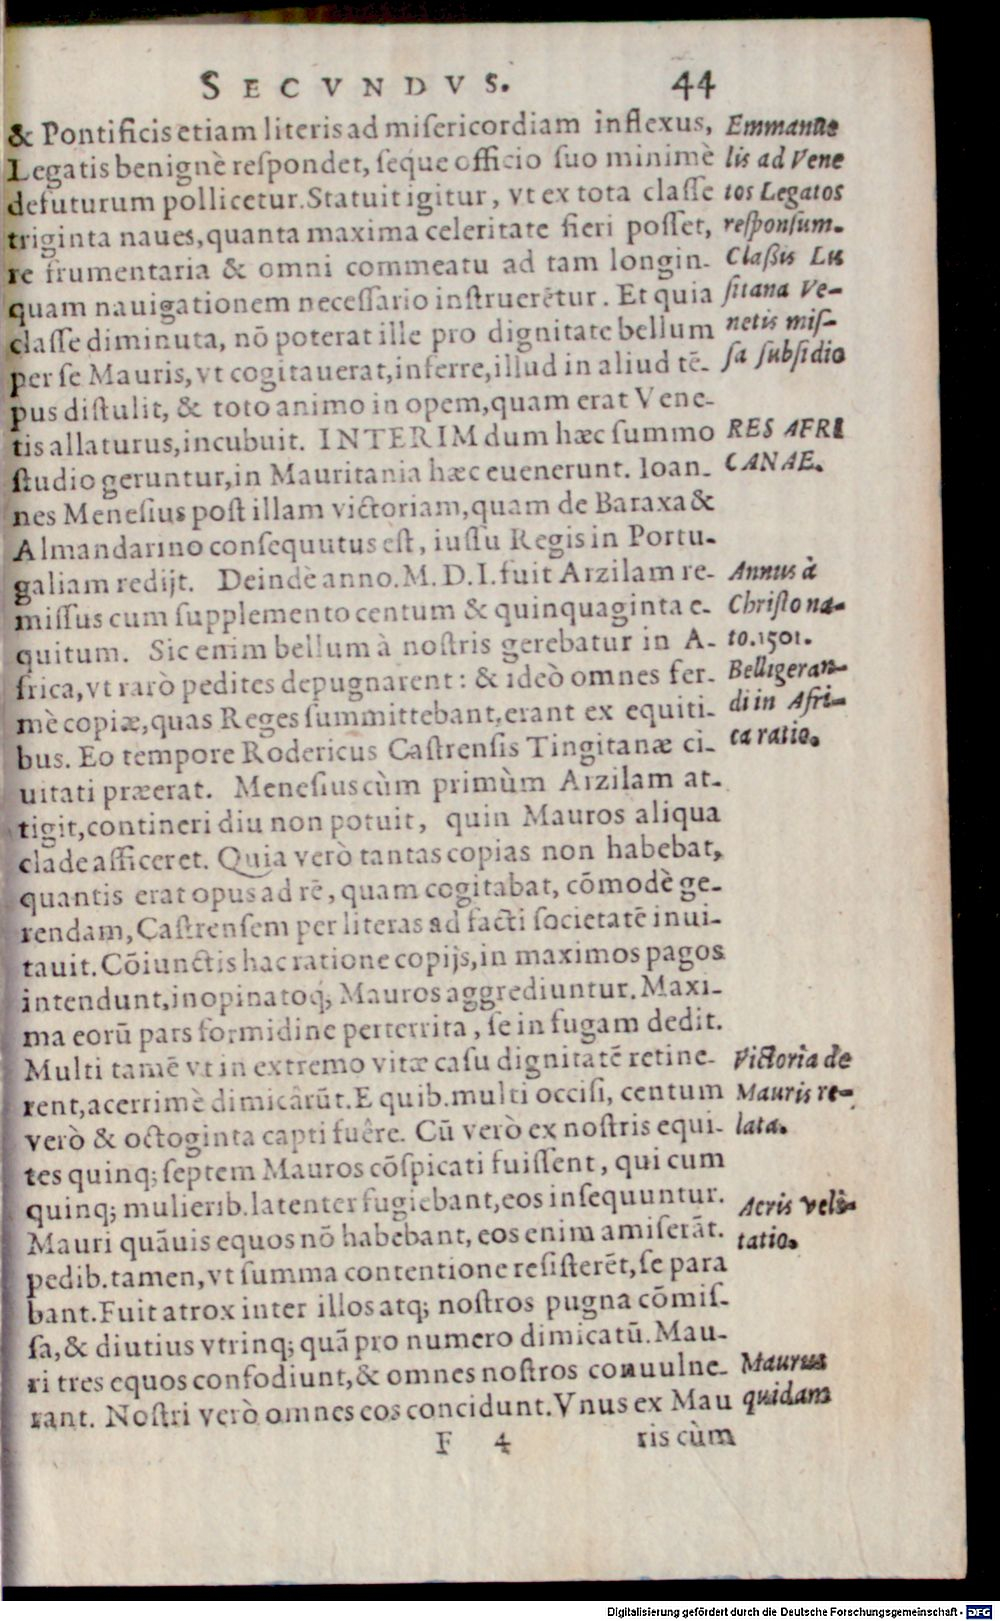 SECVNDVS. 44
& Pontificis etiam literis ad misericordiam inflexus,
Legatis benignè respondet, seque officio suo minimè
defuturum pollicetur. Statuit igitur, vt ex tota classe
triginta naues, quanta maxima celeritate fieri posset,
re frumentaria & omni commeatu ad tam longin-
quam nauigationem necessario instruerētur. Et quia
classe diminuta, nō poterat ille pro dignitate bellum
per se Mauris, vt cogitauerat, inferre, illud in aliud tē-
pus distulit, & toto animo in opem, quam erat Vene-
tis allaturus, incubuit. INTERIM dum hæc summo
studio geruntur, in Mauritania hæc euenerunt. Ioan-
nes Menesius post illam victoriam, quam de Baraxa &
Almandarino consequutus est, iussu Regis in Portu-
galiam redijt. Deindè anno. M. D. I. fuit Arzilam re-
missus cum supplemento centum & quinquaginta e-
quitum. Sic enim bellum à nostris gerebatur in A-
frica, vt rarò pedites depugnarent: & ideò omnes fer-
mè copiæ, quas Reges summittebant, erant ex equiti-
bus. Eo tempore Rodericus Castrensis Tingitanæ ci-
uitati præerat. Menesius cùm primùm Arzilam at-
tigit, contineri diu non potuit, quin Mauros aliqua
clade afficeret. Quia verò tantas copias non habebat,
quantis erat opus ad rē, quam cogitabat, cōmodè ge-
rendam, Castrensem per literas ad facti societatē inui-
tauit. Cōiunctis hac ratione copijs, in maximos pagos
intendunt, inopinatoq; Mauros aggrediuntur. Maxi-
ma eorū pars formidine perterrita, se in fugam dedit.
Multi tamē vt in extremo vitæ casu dignitatē retine-
rent, acerrimè dimicârūt. E quib. multi occisi, centum
verò & octoginta capti fuêre. Cū verò ex nostris equi-
tes quinq; septem Mauros cōspicati fuissent, qui cum
quinq; mulierib. latenter fugiebant, eos insequuntur.
Mauri quāuis equos nō habebant, eos enim amiserāt.
pedib. tamen, vt summa contentione resisterēt, se para
bant. Fuit atrox inter illos atq; nostros pugna cōmis-
sa, & diutius vtrinq; quā pro numero dimicatū. Mau-
ri tres equos confodiunt, & omnes nostros conuulne-
rant. Nostri verò omnes eos concidunt. Vnus ex Mau
F 4 ris cùm
Emmanue
lis ad Vene
tos Legatos
responsum.
Classis Lu
sitana Ve-
netis mis-
sa subsidio
RES AFRI
CANAE.
Annus à
Christo na-
to. 1501.
Belligeran-
di in Afri-
ca ratio.
Victoria de
Mauris re-
lata.
Acris velî-
tatio.
Maurus
quidam
Digitalisierung gefördert durch die Deutsche Forschungsgemeinschaft - DFG